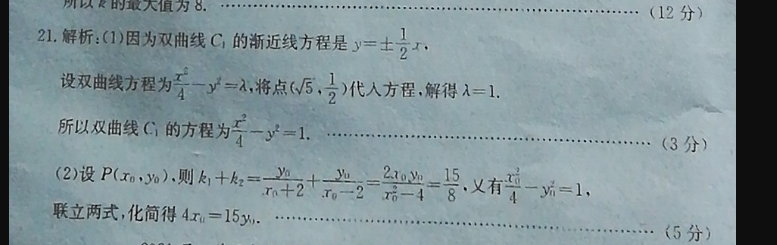 所以k的最大值为8. ……………………………………(12分)
21.解析:(1)因为双曲线C₁的渐近线方程是y=±\frac{1}{2}x,
设双曲线方程为\frac{x²}{4}-y²=λ,将点(√5,\frac{1}{2})代入方程,解得λ=1.
所以双曲线C₁的方程为\frac{x²}{4}-y²=1. ……………………………………(3分)
(2)设P(x₀,y₀),则k₁+k₂=\frac{y₀}{x₀+2}+\frac{y₀}{x₀-2}=\frac{2x₀y₀}{x₀²-4}=\frac{15}{8},又有\frac{x₀²}{4}-y₀²=1,
联立两式,化简得4x₀=15y₀. ……………………………………(5分)